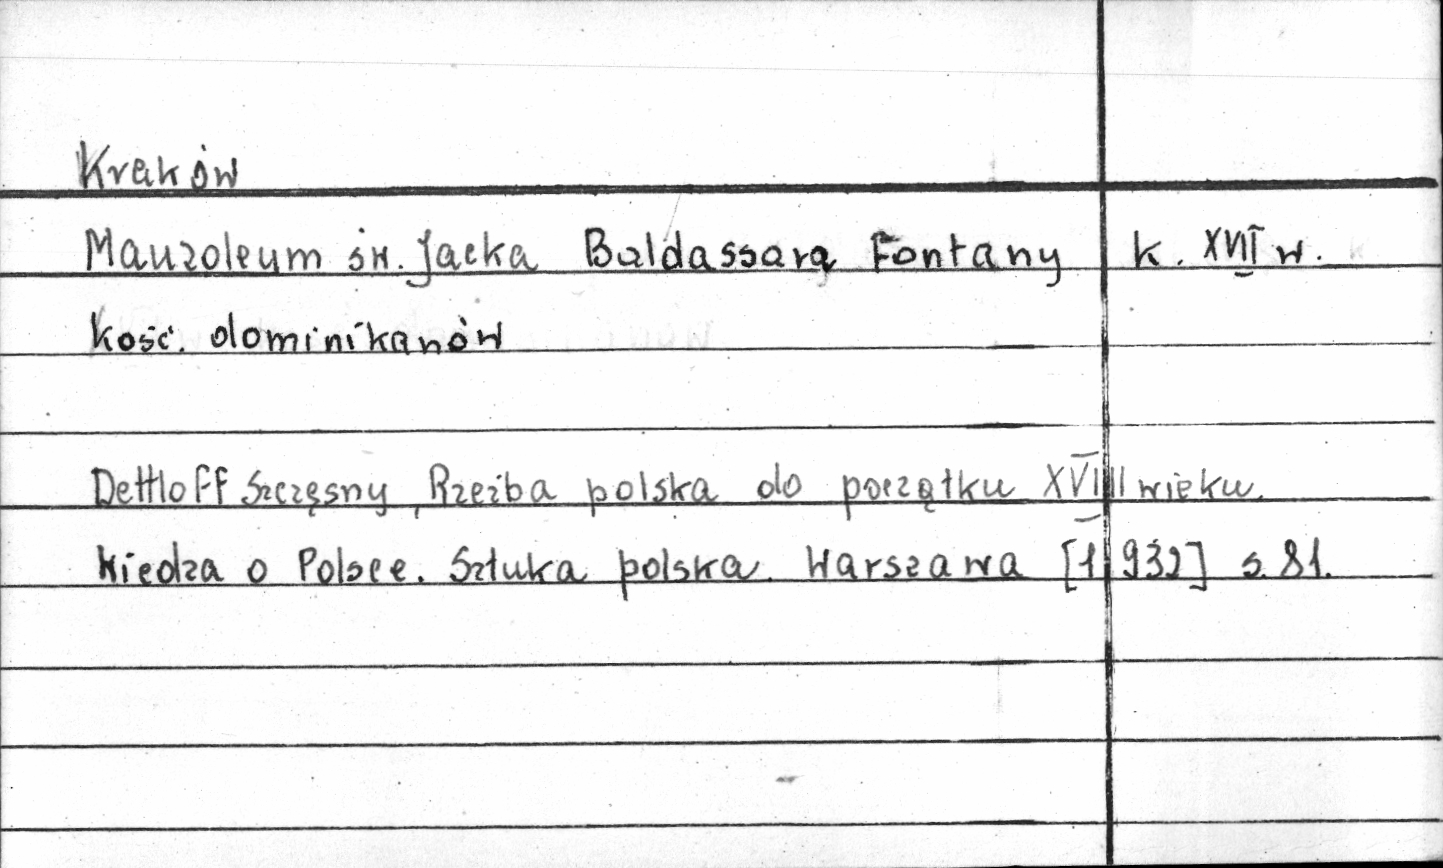 Kraków
Mauzoleum św. Jacka Baldassara Fontany k. XVII w.
kość. dominikanów
Dettloff Szczęsny, Rzeźba polska do początku XVIII wieku.
Wiedza o Polsce. Sztuka polska. Warszawa [1932] s. 81.